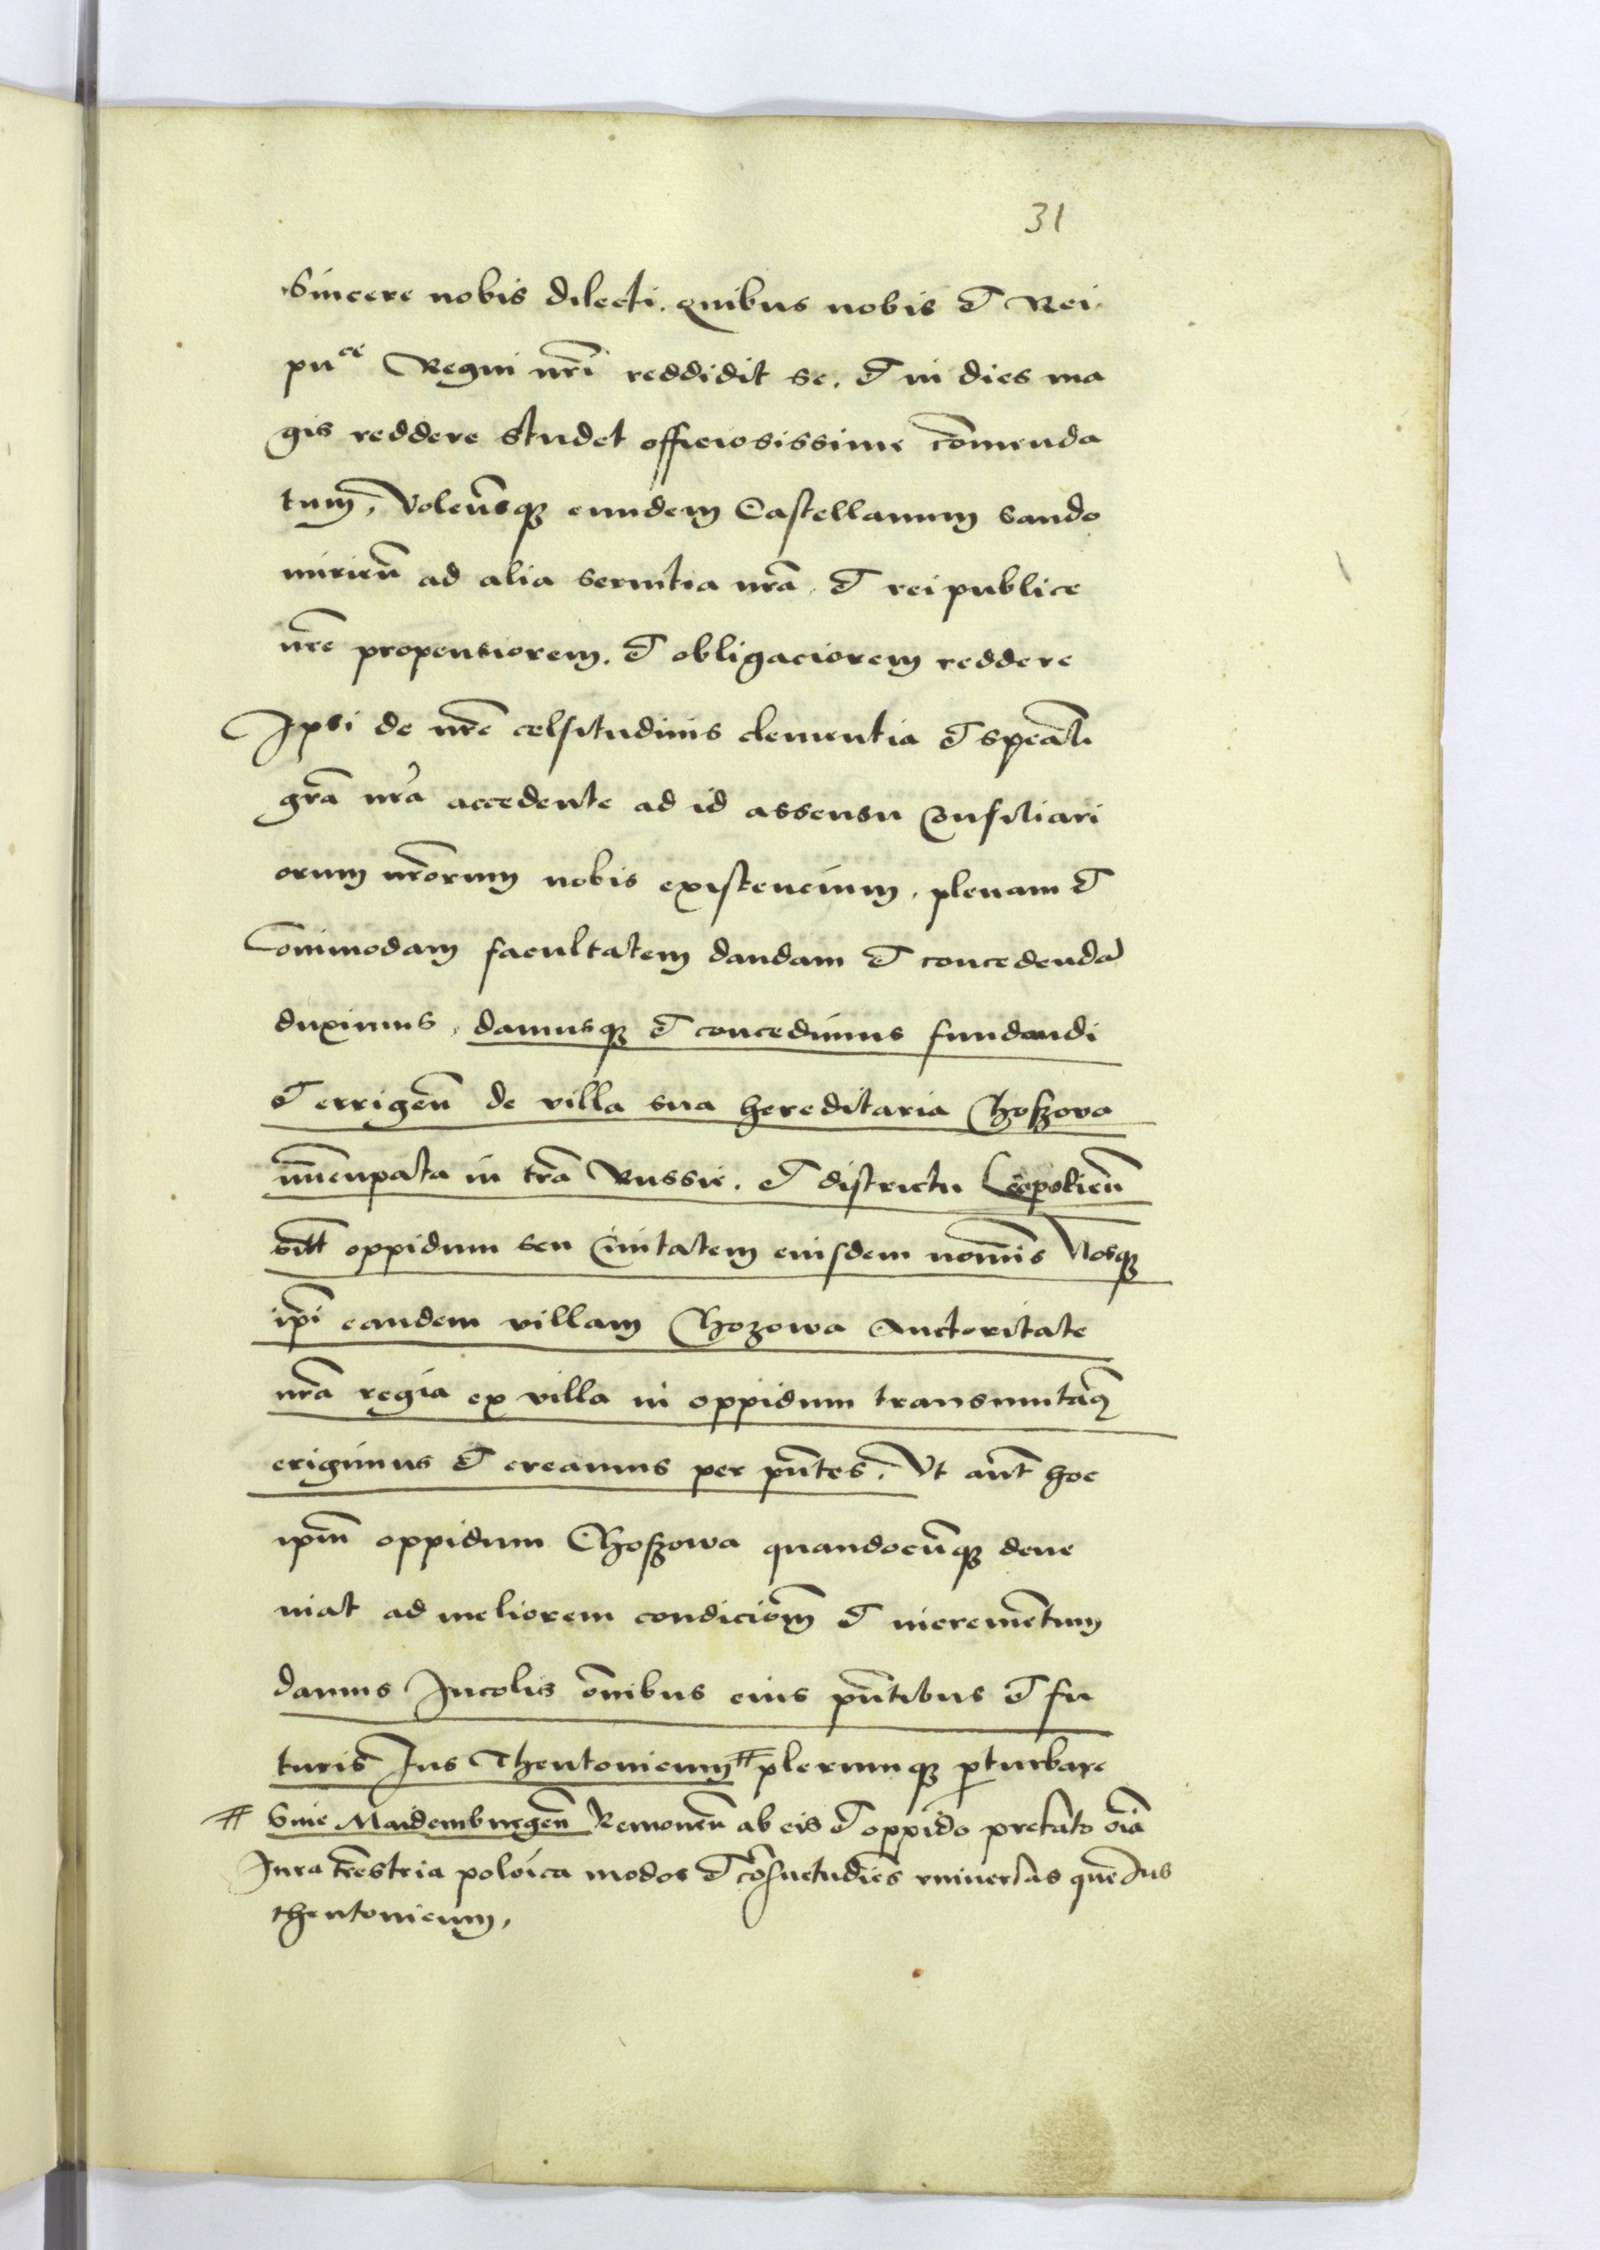 31
Sincere nobis dilecti. quibus nobis et Rei
puce Regni nri reddidit se. et in dies ma
gis reddere studet officiosissime comenda
tum, Volensque eundem Castellanum Sando
mirien ad alia servitia nra. et rei publice
nre propensiorem. et obligaciorem reddere
Ipsi de nre celsitudinis clementia et speali
gra nra accedente ad id assensu Consiliari
orum nrorum nobis existencium. plenam et
Commodam facultatem dandam et concedenda
duximus, damusque et concedimus fundandi
et errigen de villa sua hereditaria Choszova
nuncupata in tra Russie. et districtu Leopolien
oppidum seu Civitatem eiusdem nominis Nosque
ipi eandem villam Chozowa Auctoritate
nra regia ex villa in oppidum transmutaq
erigimus et creamus per pntes. Ut aut hoc
ipm oppidum Choszowa quandocunque deve
niat ad meliorem condiciom et incrementum
damus Incolis omnibus eius pntibus et fu
turis Ius Theutonicum # plerumque pturbare
# Sive Maidemburgen Removen ab eis et oppido prefato oia
Iura trestria poloica modos et cosuetudies universas que Ius
theutonicum,